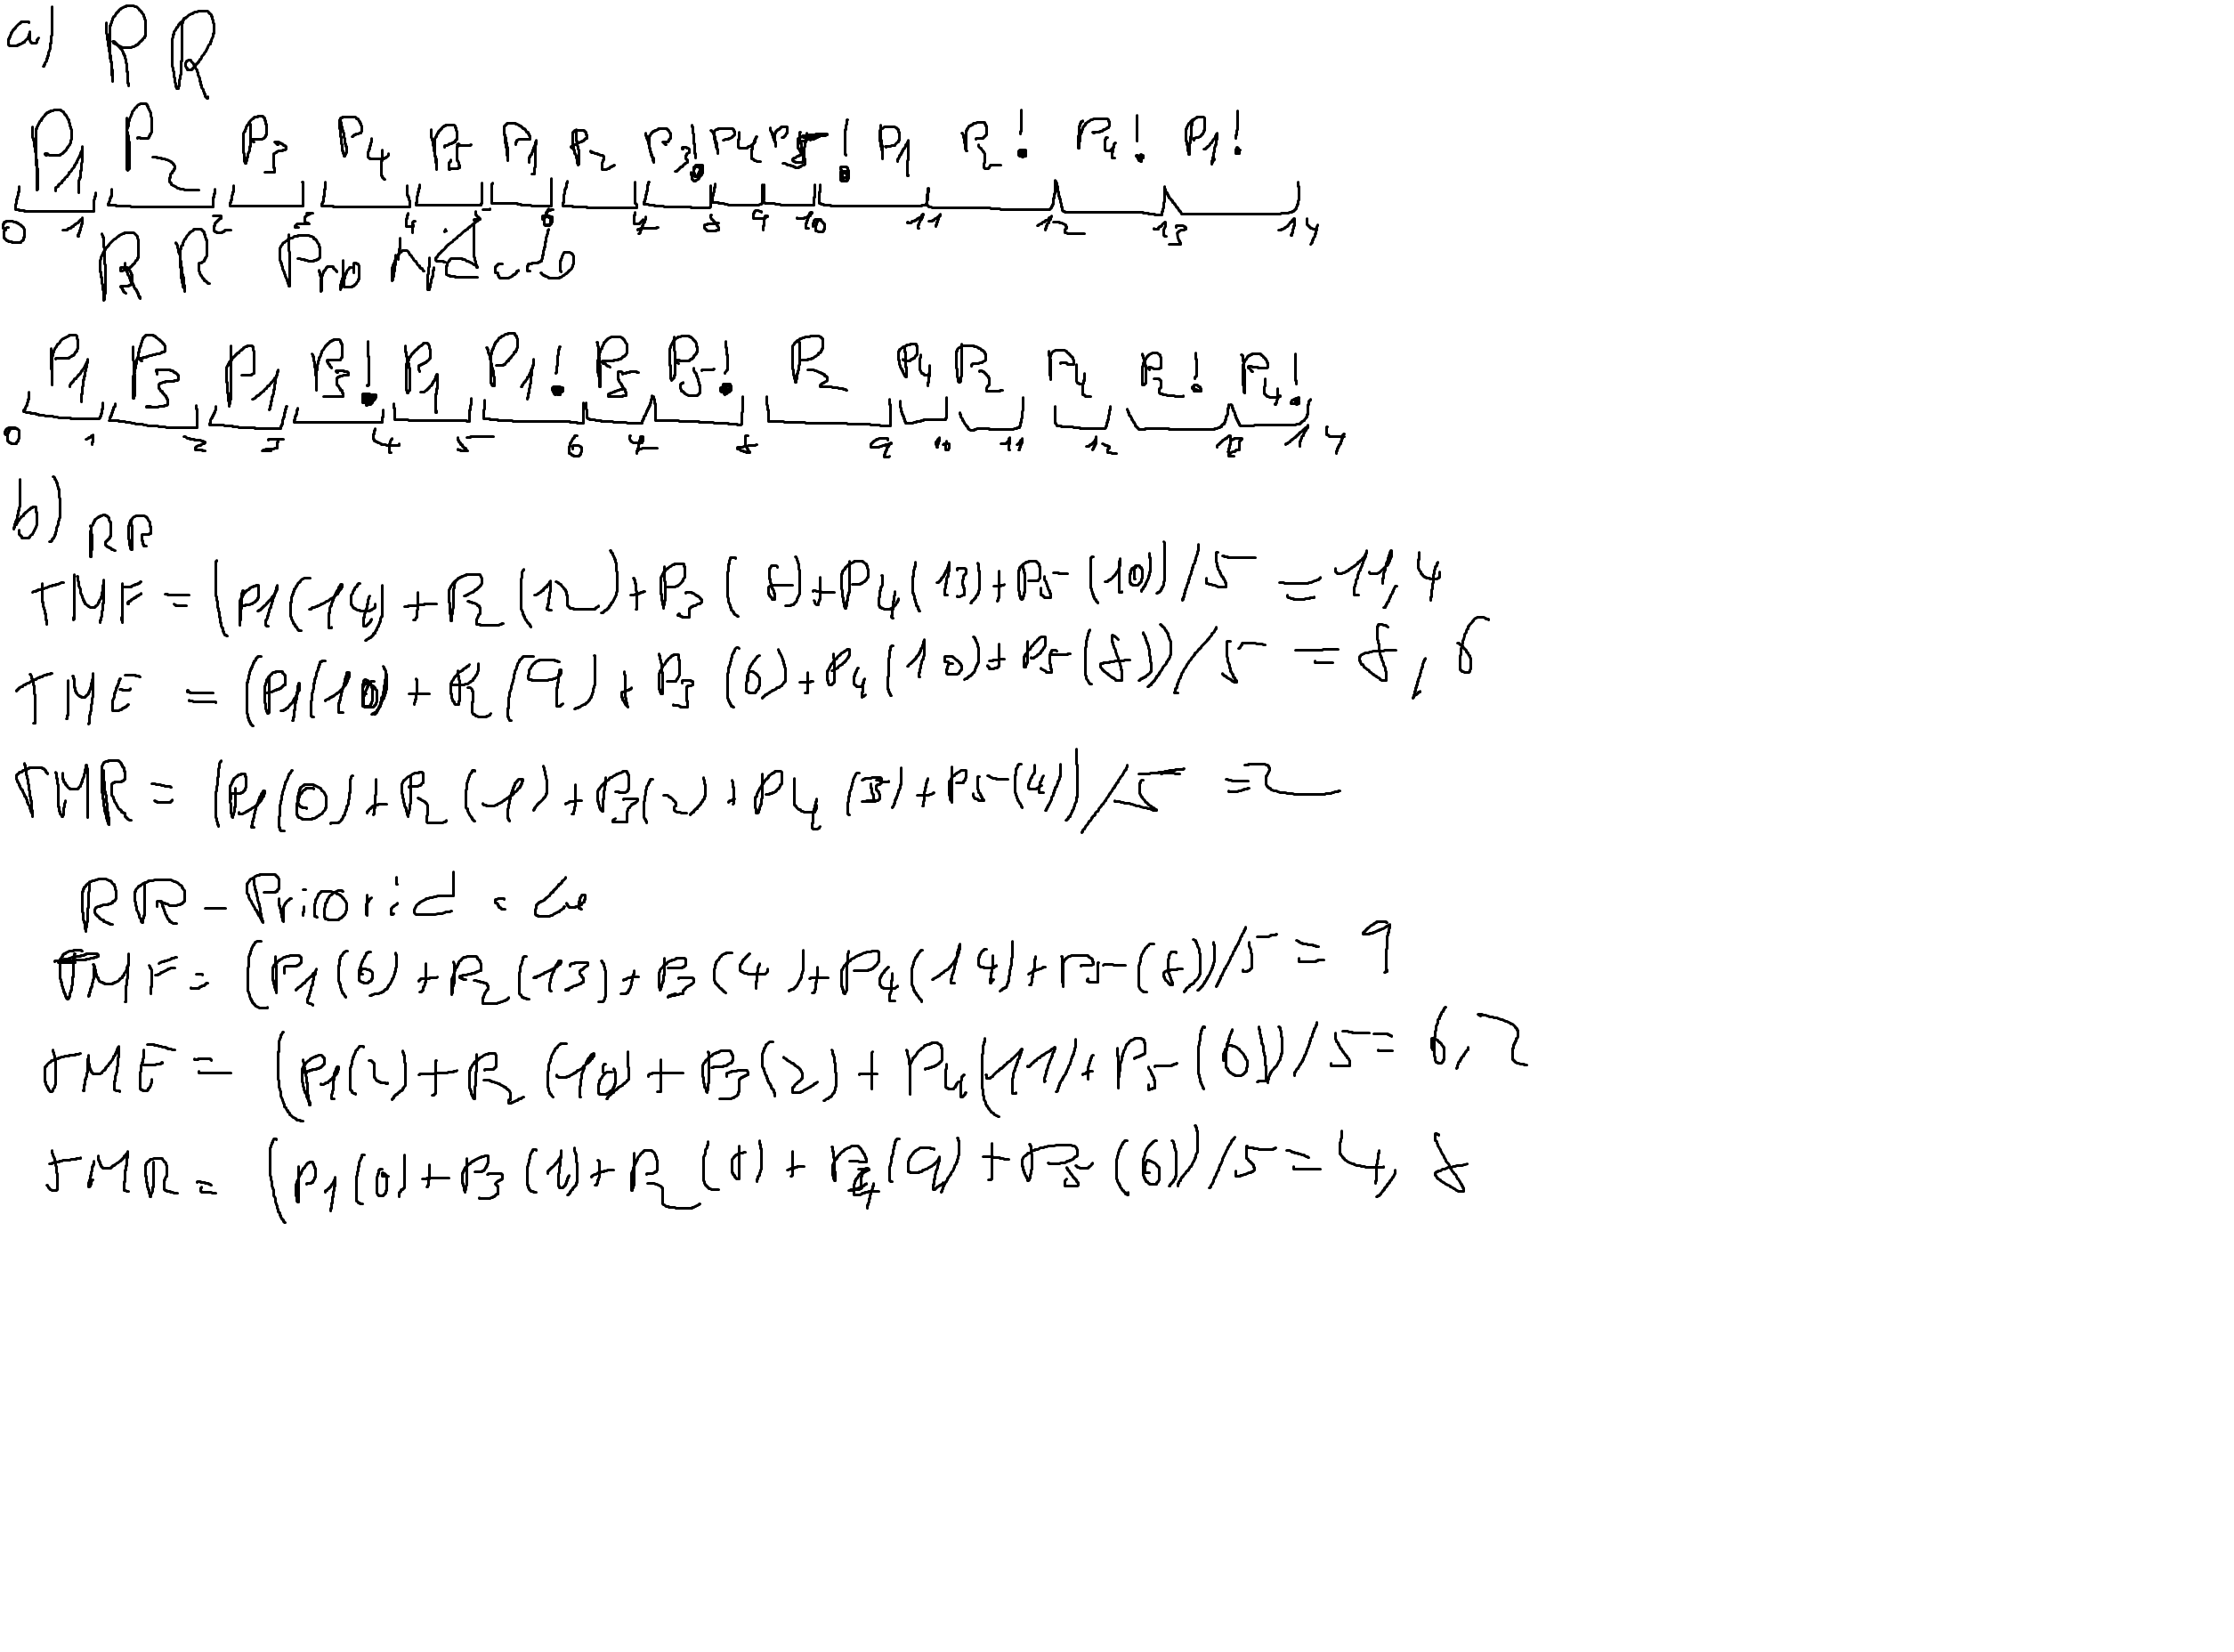 a) RR
P1 P2 P3 P4 P5 P1 P2 P3! P4 P5! P1 P2! P4! P1!
0 1 2 3 4 5 6 7 8 9 10 11 12 13 14
RR
P1 P3 P1 P3! P1 P1! P5 P5! P2 P4 P2 P4 P2! P4!
0 1 2 3 4 5 6 7 8 9 10 11 12 13 14
b) RR
TMF = (P1(14) + P2(12) + P3(8) + P4(13) + P5(10))/5 = 11,4
TME = (P1(10) + P2(9) + P3(6) + P4(10) + P5(8))/5 = 8,6
TMR = (P1(0) + P2(1) + P3(2) + P4(3) + P5(4))/5 = 2
RR - Prioridade
TMF = (P1(6) + P2(13) + P3(4) + P4(14) + P5(8))/5 = 9
TME = (P1(2) + P2(10) + P3(2) + P4(11) + P5(6))/5 = 6,2
TMR = (P1(0) + P3(1) + P2(8) + P4(9) + P5(6))/5 = 4,8